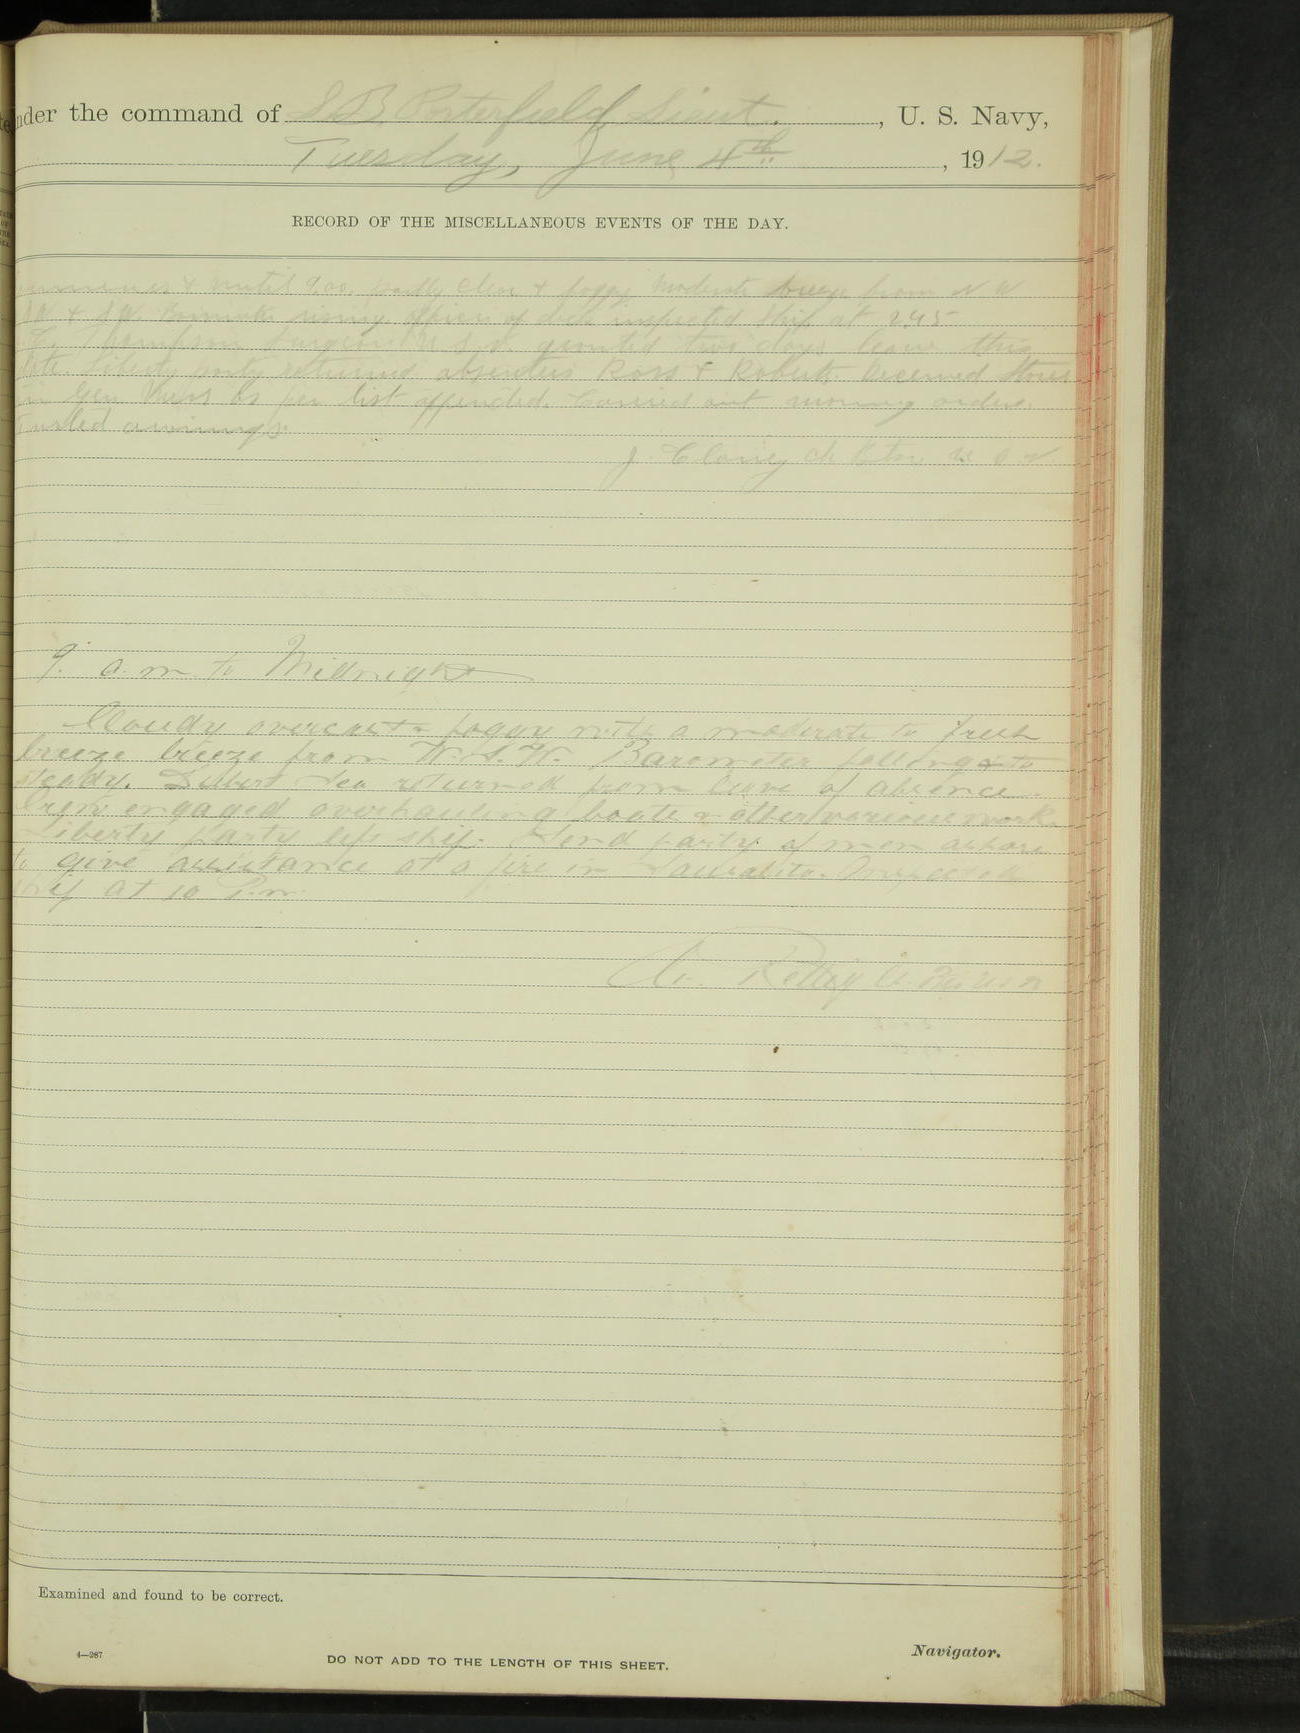 nder the command of L B Porterfield Lieut. , U. S. Navy,
Tuesday, June 4th , 1912.
RECORD OF THE MISCELLANEOUS EVENTS OF THE DAY.
& until 9.00, partly clear & foggy. Moderate breeze from N W
rising. officer of deck inspected ship at 2.45
Thompson Surgeon U S N. granted two days leave this
date. Liberty party returned absentees Ross & Roberts. Received stores
in Gen as per list appended. Carried out morning orders.
Furled awnings.
J. Clancy Ch Btsn. U S N
9. a. m. to Midnight
Cloudy overcast & foggy with a moderate to fresh
breeze breeze from W.S.W. Barometer falling & to
steady. returned from leave of absence.
Crew engaged overhauling boats & other various work.
Liberty party left ship. Send party of men ashore
to give assistance at a fire in Sausalito. Inspected
ship at 10 P.m.
Examined and found to be correct.
4—287
DO NOT ADD TO THE LENGTH OF THIS SHEET.
Navigator.